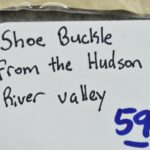 Shoe Buckle
From the Hudson
River valley
59